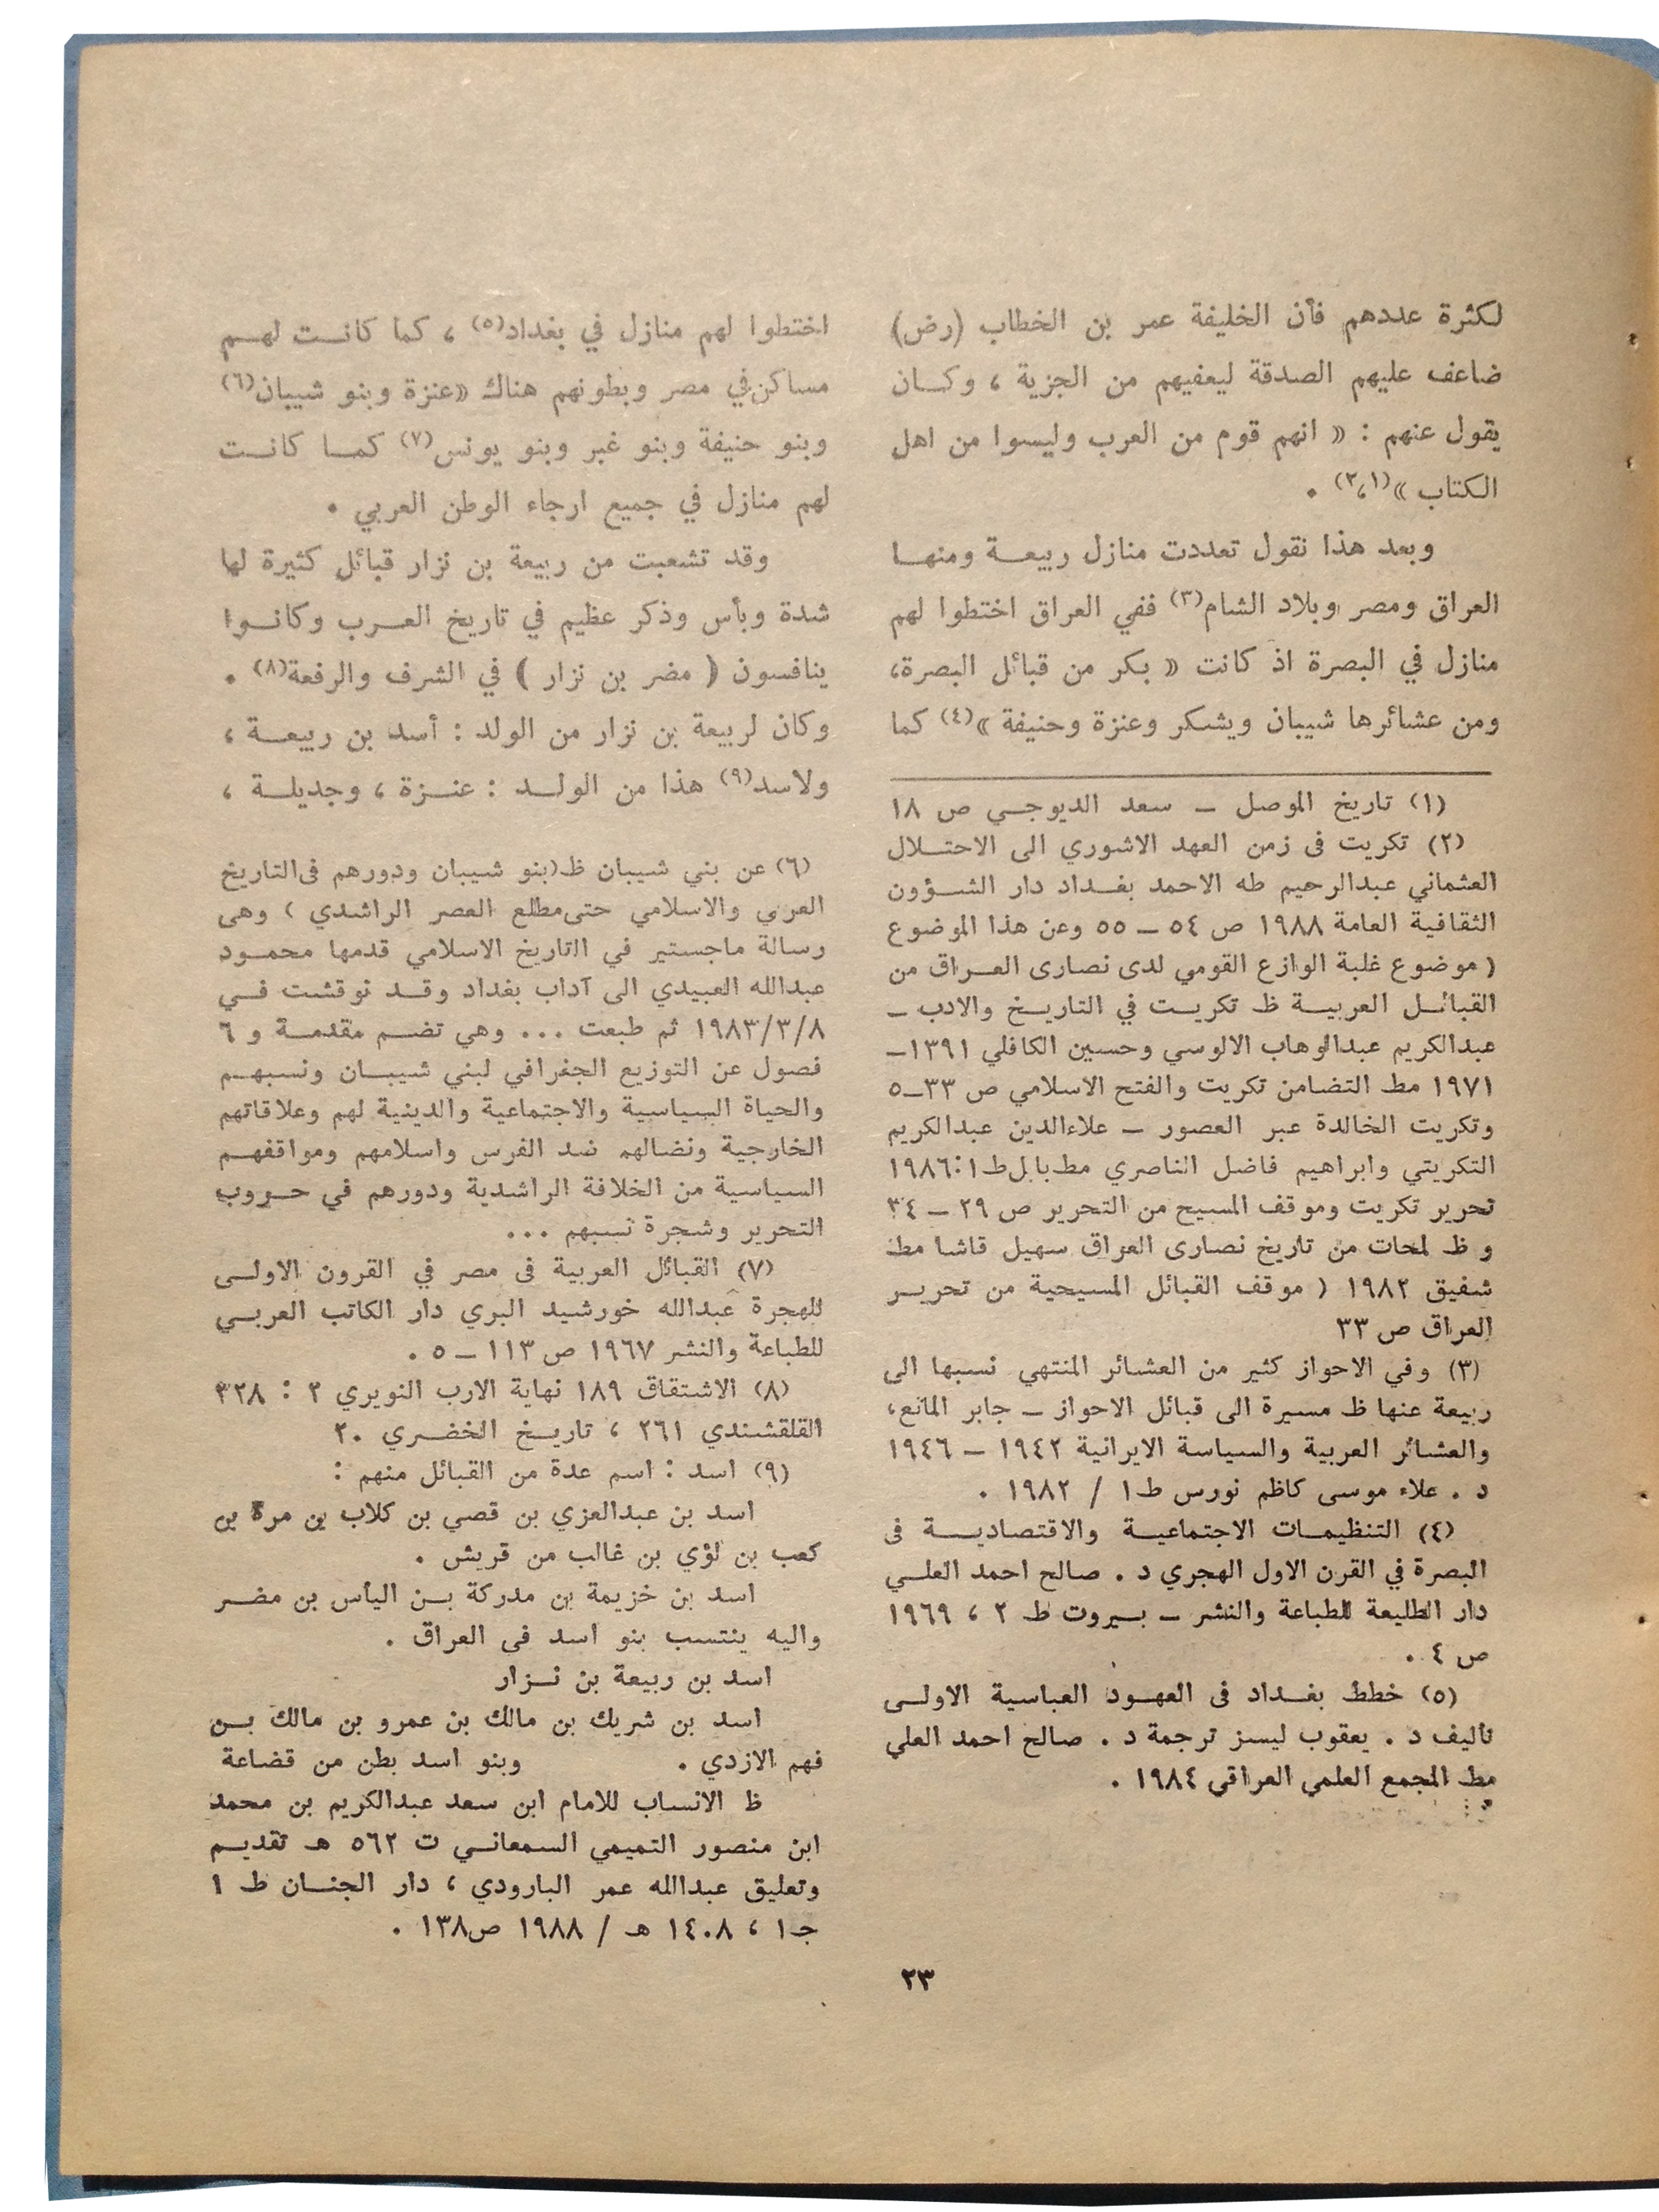 لكثرة عددهم فأن الخليفة عمر بن الخطاب (رض)
ضاعف عليهم الصدقة ليعفيهم من الجزية ، وكــان
يقول عنهم : « انهم قوم من العرب وليسوا من اهل
الكتاب »(١،٢) .
وبعد هذا نقول تعددت منازل ربيعــة ومنهــا
العراق ومصر وبلاد الشام(٣) ففي العراق اختطوا لهم
منازل في البصرة اذ كانت « بكر من قبائل البصرة،
ومن عشائرها شيبان ويشكر وعنزة وحنيفة »(٤) كما
(١) تاريخ الموصل ــ سعد الديوجــي ص ١٨
(٢) تكريت فى زمن العهد الاشوري الى الاحتــلال
العثماني عبدالرحيم طه الاحمد بغــداد دار الشــؤون
الثقافية العامة ١٩٨٨ ص ٥٤ ــ ٥٥ وعن هذا الموضوع
( موضوع غلبة الوازع القومي لدى نصارى العــراق من
القبائــل العربيــة ظ تكريــت في التاريــخ والادب ــ
عبدالكريم عبدالوهاب الالوسي وحسين الكافلي ١٣٩١ــ
١٩٧١ مط التضامن تكريت والفتح الاسلامي ص ٣٣ــ٥
وتكريت الخالدة عبر العصور ــ علاءالدين عبدالكريم
التكريتي وابراهيم فاضل الناصري مط بابل ط١ :١٩٨٦
تحرير تكريت وموقف المسيح من التحرير ص ٢٩ ــ ٣٤
و ظ لمحات من تاريخ نصارى العراق سهيل قاشا مط
شفيق ١٩٨٢ ( موقف القبائل المسيحية من تحريــر
العراق ص ٣٣
(٣) وفي الاحواز كثير من العشائر المنتهي نسبها الى
ربيعة عنها ظ مسيرة الى قبائل الاحواز ــ جابر المانع،
والعشائر العربية والسياسة الايرانية ١٩٤٢ ــ ١٩٤٦
د . علاء موسى كاظم نورس ط١ / ١٩٨٢ .
(٤) التنظيمــات الاجتماعيــة والاقتصاديــة فى
البصرة في القرن الاول الهجري د . صالح احمد العلــي
دار الطليعة للطباعة والنشر ــ بــيروت ط ٢ ، ١٩٦٩
ص ٤ .
(٥) خطط بغــداد فى العهــود العباسية الاولــى
تأليف د . يعقوب ليسنر ترجمة د . صالح احمد العلي
مط المجمع العلمي العراقي ١٩٨٤ .
اختطوا لهم منازل في بغداد(٥) ، كما كانــت لهــم
مساكن في مصر وبطونهم هناك «عنزة وبنو شيبان(٦)
وبنو حنيفة وبنو غبر وبنو يونس(٧) كمــا كانــت
لهم منازل في جميع ارجاء الوطن العربي .
وقد تشعبت من ربيعة بن نزار قبائل كثيرة لها
شدة وبأس وذكر عظيم في تاريخ العــرب وكانــوا
ينافسون ( مضر بن نزار ) في الشرف والرفعة(٨) .
وكان لربيعة بن نزار من الولد : أسد بن ربيعــة ،
ولاسد(٩) هذا من الولــد : عنــزة ، وجديلــة ،
(٦) عن بني شيبان ظ (بنو شيبان ودورهم فى التاريخ
العربي والاسلامي حتى مطلع العصر الراشدي ) وهى
رسالة ماجستير في التاريخ الاسلامي قدمها محمــود
عبدالله العبيدي الى آداب بغداد وقــد نوقشت فــي
١٩٨٣/٣/٨ ثم طبعت ... وهي تضــم مقدمــة و ٦
فصول عن التوزيع الجغرافي لبني شيبــان ونسبهــم
والحياة السياسية والاجتماعية والدينية لهم وعلاقاتهم
الخارجية ونضالهم ضد الفرس واسلامهم ومواقفهــم
السياسية من الخلافة الراشدية ودورهم في حــروب
التحرير وشجرة نسبهم ...
(٧) القبائل العربية فى مصر في القرون الاولــى
للهجرة عبدالله خورشيد البري دار الكاتب العربــي
للطباعة والنشر ١٩٦٧ ص ١١٣ ــ ٥ .
(٨) الاشتقاق ١٨٩ نهاية الارب النويري ٢ : ٣٢٨
القلقشندي ٢٦١ ، تاريــخ الخضــري ٢٠
(٩) اسد : اسم عدة من القبائل منهم :
اسد بن عبدالعزي بن قصي بن كلاب بن مرة بن
كعب بن لؤي بن غالب من قريش .
اسد بن خزيمة بن مدركة بــن اليأس بن مضــر
واليه ينتسب بنو اسد فى العراق .
اسد بن ربيعة بن نــزار
اسد بن شريك بن مالك بن عمرو بن مالك بــن
فهم الازدي . وبنو اسد بطن من قضاعة
ظ الانساب للامام ابن سعد عبدالكريم بن محمد
ابن منصور التميمي السمعانــي ت ٥٦٢ هـ تقديــم
وتعليق عبدالله عمر البارودي ، دار الجنــان ط ١
جـ١ ، ١٤٠٨ هـ / ١٩٨٨ ص١٣٨ .
٢٣